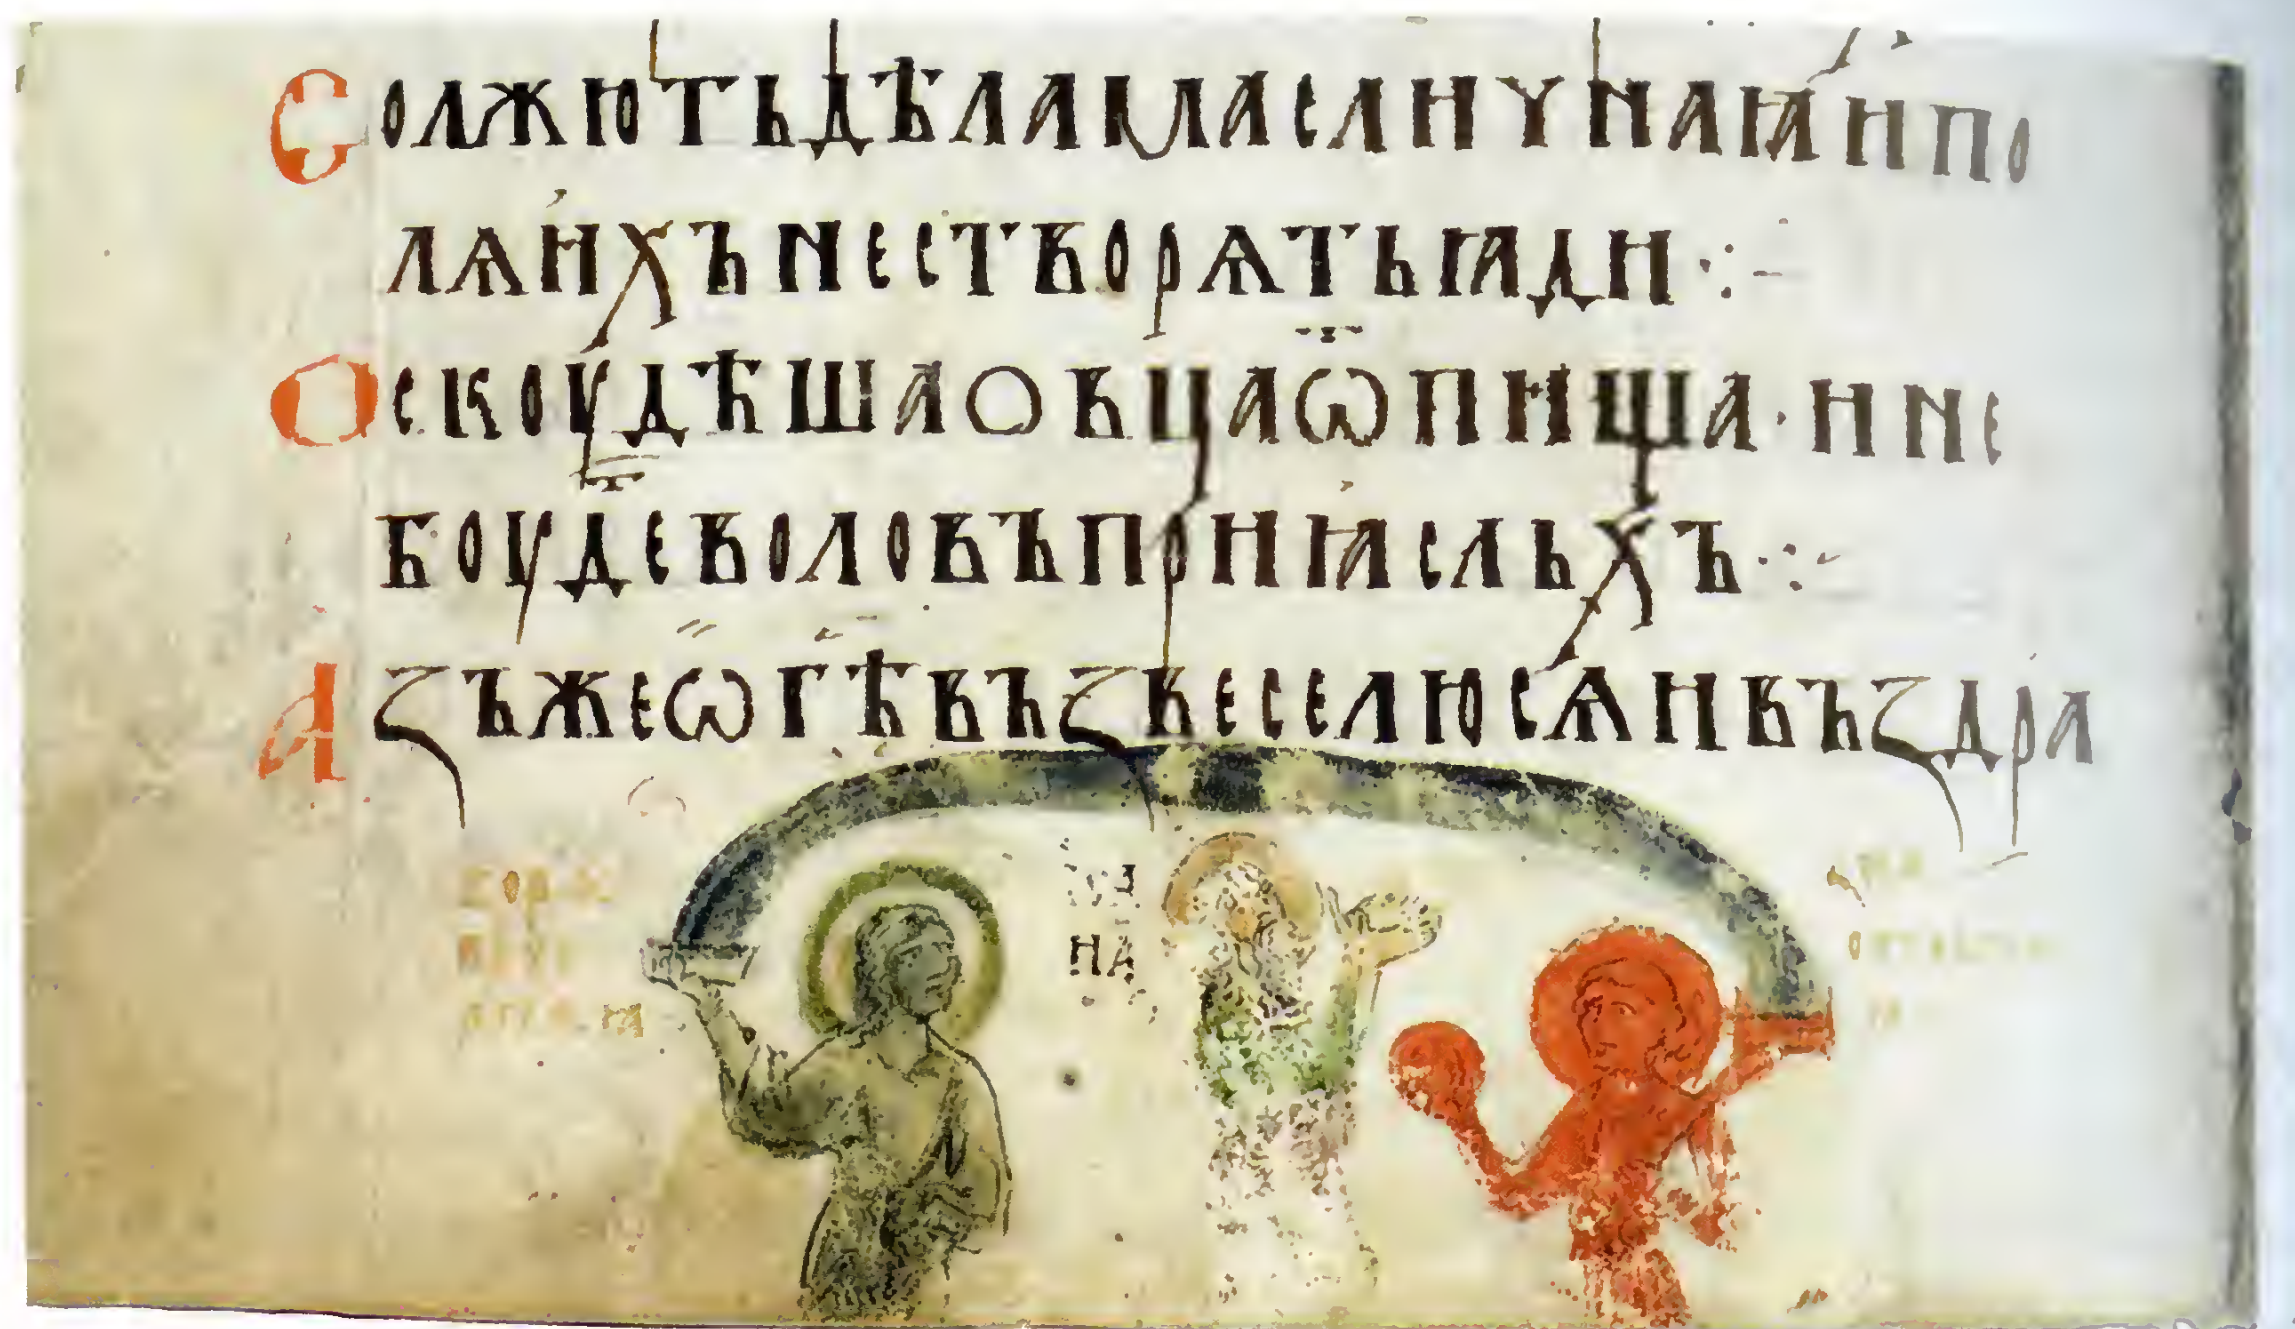 Сължють дѣла маслиꙋнаꙗ и по
лѧ ихъ не створѧть ꙗди ⁘ –
Оскоудѣша овцаѿ пища · и не
боудеволовъпри ꙗсльхъ ⁘ –
Азъжеѡгѣвъзвеселюсѧивъздра
на